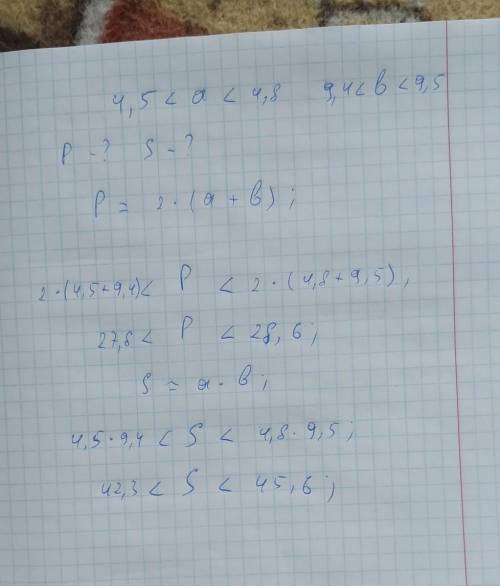 4,5 < a < 4,8 9,4 < b < 9,5
P - ? S - ?
P = 2 · (a + b) ;
2 · (4,5 + 9,4) < P < 2 · (4,8 + 9,5) ,
27,8 < P < 28,6 ;
S = a · b ;
4,5 · 9,4 < S < 4,8 · 9,5 ;
42,3 < S < 45,6 ;